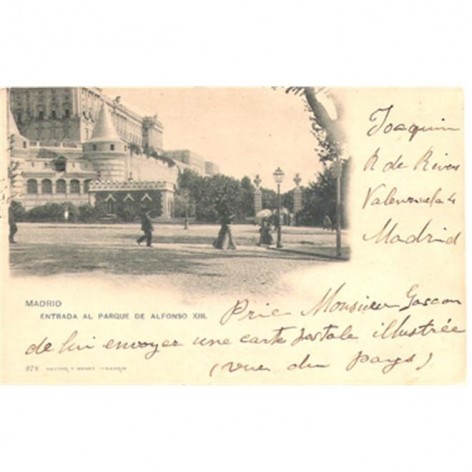 Joaquin
R de Rivas
Valenzuela 4
Madrid
MADRID
ENTRADA AL PARQUE DE ALFONSO XIII.
Prie Monsieur Gascon
de lui envoyer une carte postale illustrée
(vue du pays)
878 HAUSER Y MENET.—MADRID